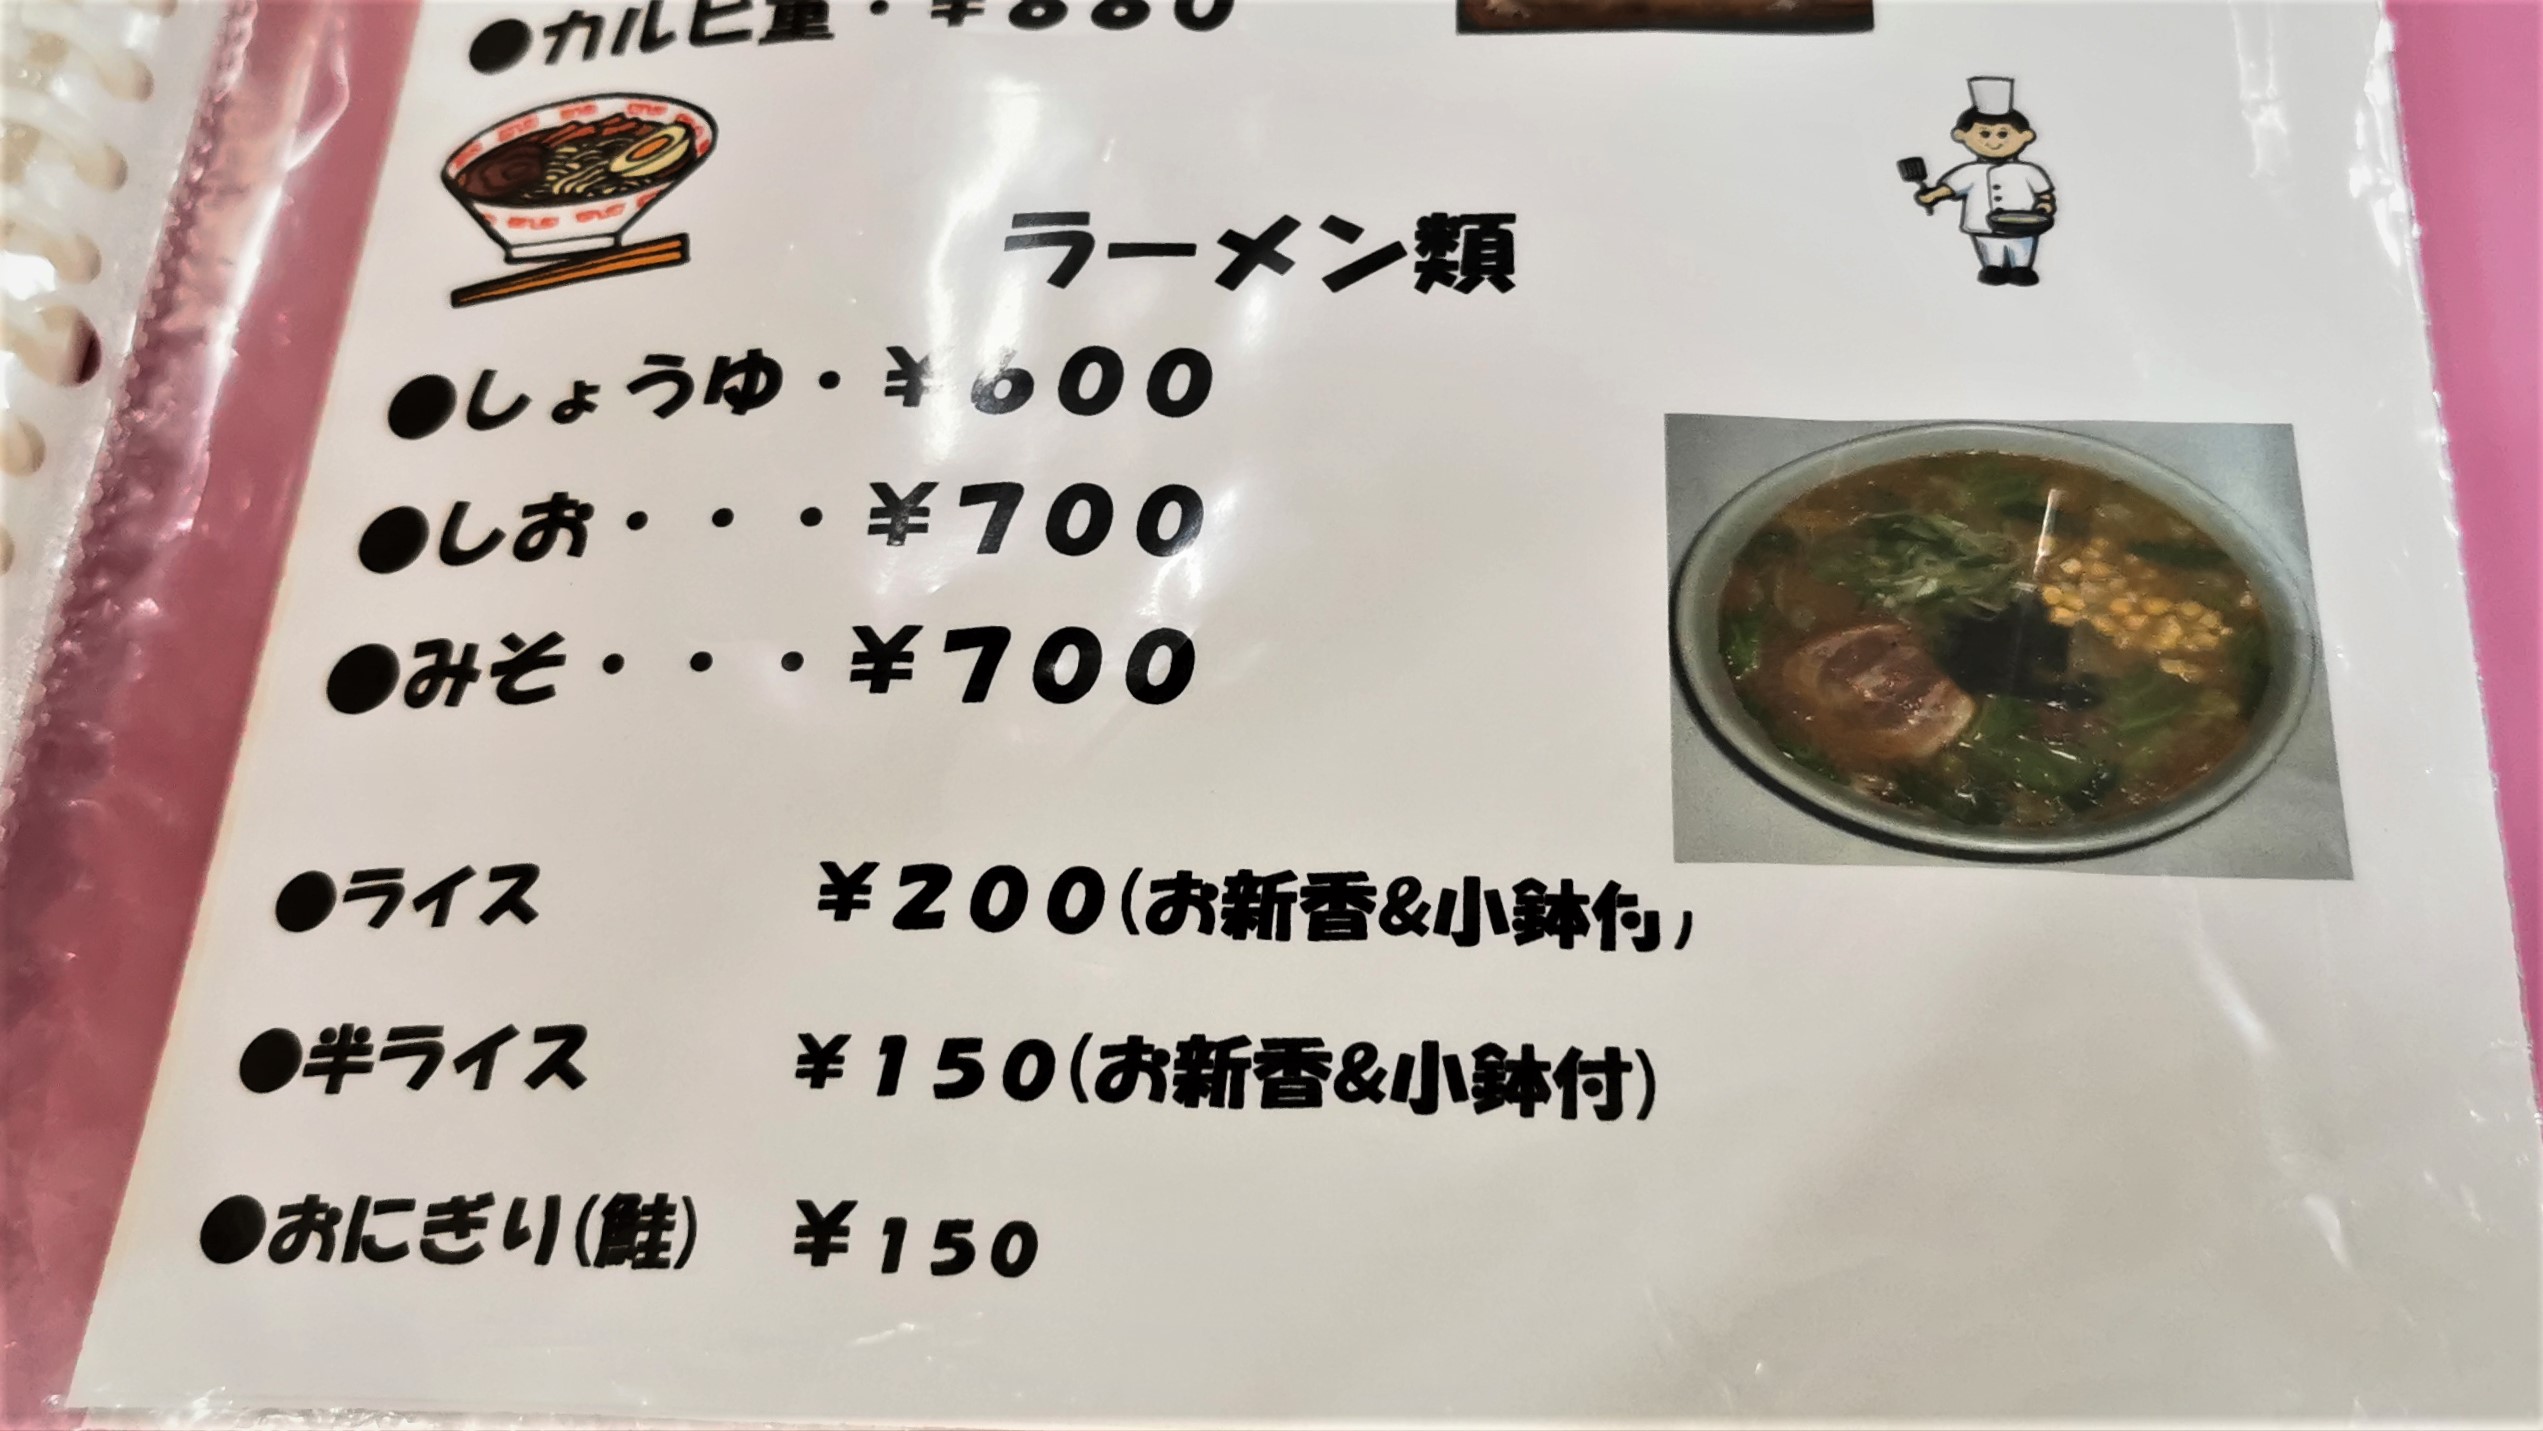 ●カルビ重・
ラーメン類
●しょうゆ・¥600
●しお・・・¥700
●みそ・・・¥700
●ライス ¥200(お新香&小鉢付)
●半ライス ¥150(お新香&小鉢付)
●おにぎり(鮭) ¥150